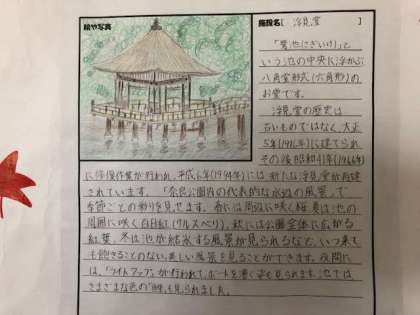 絵や写真
施設名[ 浮見堂 ]
「鷺池(さぎいけ)」と
いう池の中央に浮かぶ
八角堂形式(六角形)の
お堂です。
浮見堂の歴史は
古いものではなく、大正
5年(1916年)に建てられ
その後昭和41年(1966年)
に修復作業が行われ、平成6年(1994年)には新たな浮見堂が再建
されています。「奈良公園内の代表的な水辺の風景」で
季節ごとの彩りを見せます。春には周辺に咲く桜、夏は池の
周囲に咲く百日紅(サルスベリ)、秋には公園全体に広がる
紅葉、冬は池が結氷する風景が見られるなど、いつ来て
も飽きることのない美しい風景を見ることができます。夜間に
は、「ライトアップ」が行われて、ボートを漕ぐ姿も見られます。池では
さまざまな色の「鯉」も見られました。